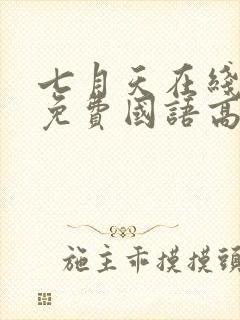 七月天在綫
免費國語高
施主乖摸摸頭